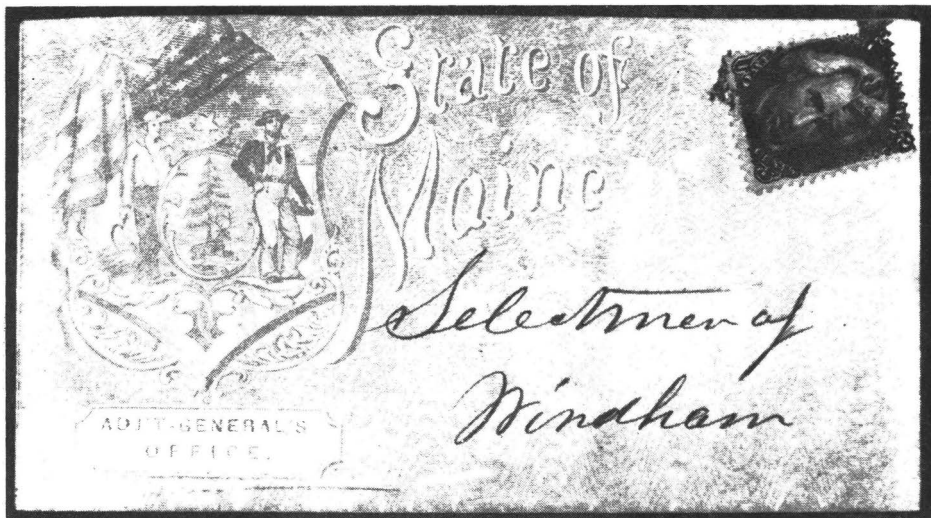 State of
Maine
Selectmen of
Windham
ADJT-GENERAL'S
OFFICE.